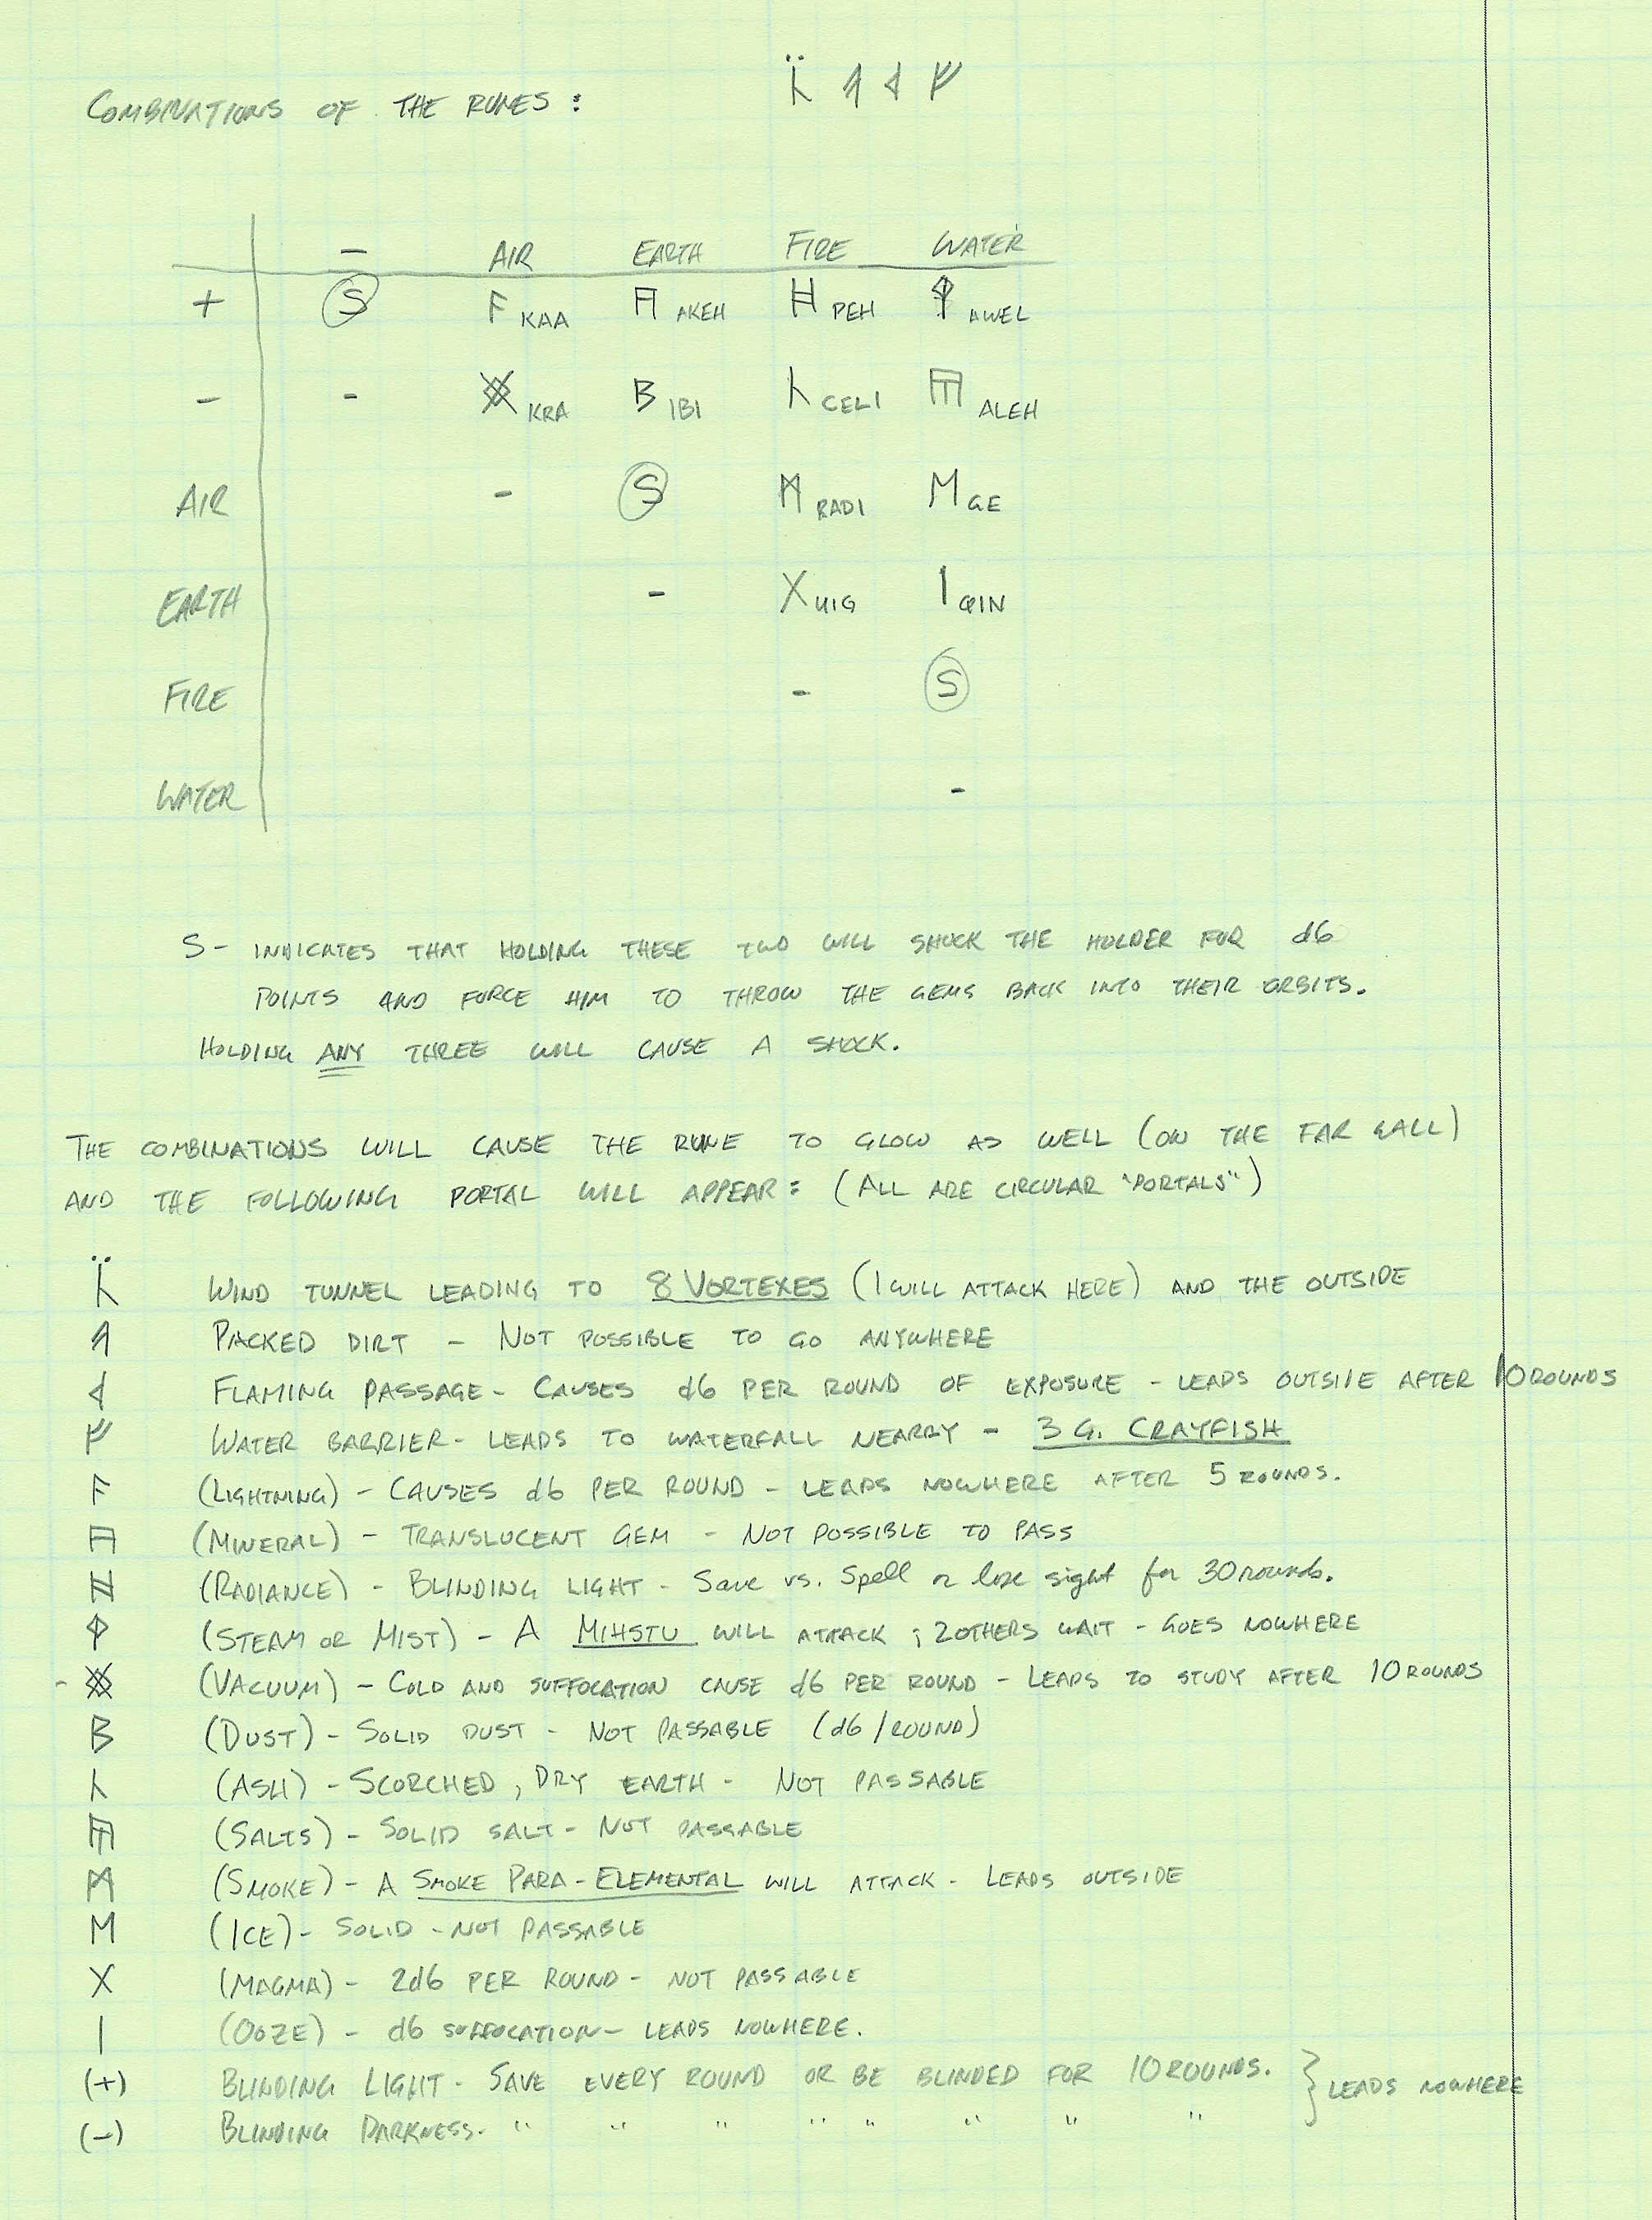 COMBINATIONS OF THE RUNES :
- AIR EARTH FIRE WATER
+ S F KAA AKEH PEH AWEL
- - KRA B IBI CELI ALEH
AIR - S RADI M GE
EARTH - X UIG I QIN
FIRE - S
WATER -
S - INDICATES THAT HOLDING THESE TWO WILL SHOCK THE HOLDER FOR d6
POINTS AND FORCE HIM TO THROW THE GEMS BACK INTO THEIR ORBITS.
HOLDING ANY THREE WILL CAUSE A SHOCK.
THE COMBINATIONS WILL CAUSE THE RUNE TO GLOW AS WELL (ON THE FAR WALL)
AND THE FOLLOWING PORTAL WILL APPEAR : (ALL ARE CIRCULAR "PORTALS")
WIND TUNNEL LEADING TO 8 VORTEXES (1 WILL ATTACK HERE) AND THE OUTSIDE
PACKED DIRT - NOT POSSIBLE TO GO ANYWHERE
FLAMING PASSAGE - CAUSES d6 PER ROUND OF EXPOSURE - LEADS OUTSIDE AFTER 10 ROUNDS
WATER BARRIER - LEADS TO WATERFALL NEARBY - 3 G. CRAYFISH
F (LIGHTNING) - CAUSES d6 PER ROUND - LEADS NOWHERE AFTER 5 ROUNDS.
(MINERAL) - TRANSLUCENT GEM - NOT POSSIBLE TO PASS
(RADIANCE) - BLINDING LIGHT - Save vs. Spell or lose sight for 30 rounds.
(STEAM OR MIST) - A MIHSTU WILL ATTACK ; 2 OTHERS WAIT - GOES NOWHERE
- (VACUUM) - COLD AND SUFFOCATION CAUSE d6 PER ROUND - LEADS TO STUDY AFTER 10 ROUNDS
B (DUST) - SOLID DUST - NOT PASSABLE (d6 / ROUND)
(ASH) - SCORCHED, DRY EARTH - NOT PASSABLE
(SALTS) - SOLID SALT - NOT PASSABLE
(SMOKE) - A SMOKE PARA-ELEMENTAL WILL ATTACK - LEADS OUTSIDE
M (ICE) - SOLID - NOT PASSABLE
X (MAGMA) - 2d6 PER ROUND - NOT PASSABLE
I (OOZE) - d6 SUFFOCATION - LEADS NOWHERE.
(+) BLINDING LIGHT - SAVE EVERY ROUND OR BE BLINDED FOR 10 ROUNDS. } LEADS NOWHERE
(-) BLINDING DARKNESS. " " " " " " " "